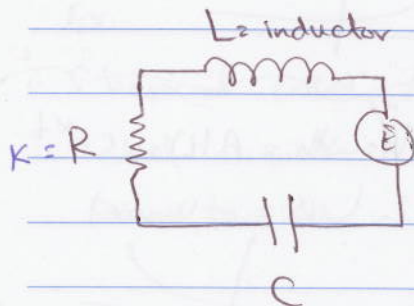 L = inductor
K = R
E
C